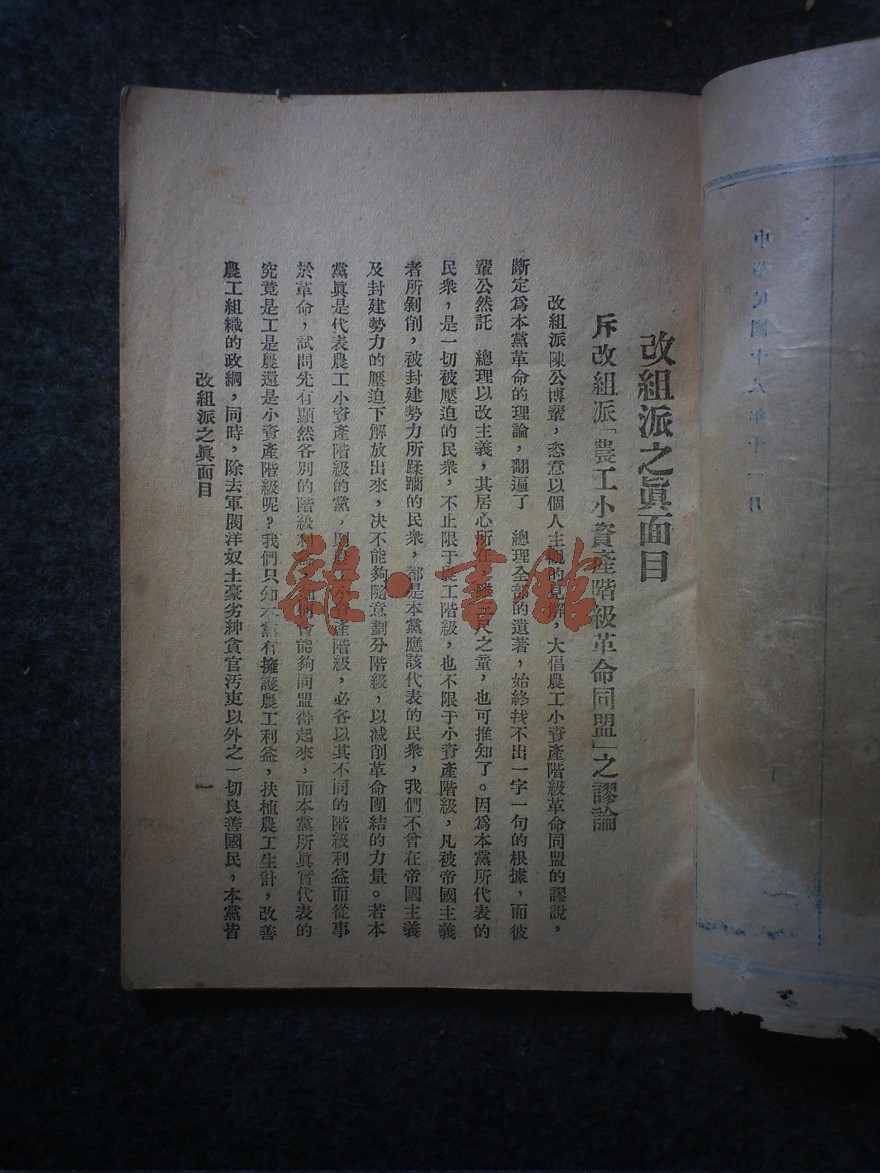 中華民國十八年十一月
改組派之眞面目
斥改組派「農工小資產階級革命同盟」之謬論
改組派陳公博輩，恣意以個人主觀的見解，大倡農工小資產階級革命同盟的謬說，
斷定爲本黨革命的理論，翻遍了　總理全部的遺著，始終找不出一字一句的根據，而彼
輩公然託　總理以改主義，其居心所在，雖三尺之童，也可推知了。因爲本黨所代表的
民衆，是一切被壓迫的民衆，不止限于農工階級，也不限于小資產階級，凡被帝國主義
者所剝削，被封建勢力所蹂躪的民衆，都是本黨應該代表的民衆，我們不曾在帝國主義
及封建勢力的壓迫下解放出來，决不能夠隨意劃分階級，以減削革命團結的力量。若本
黨眞是代表農工小資產階級的黨，則農工小資產階級，必各以其不同的階級利益而從事
於革命，試問先有顯然各別的階級利益，如何會能夠同盟得起來，而本黨所眞實代表的
究竟是工是農還是小資產階級呢？我們只知本黨有擁護農工利益，扶植農工生計，改善
農工組織的政綱，同時，除去軍閥洋奴土豪劣紳貪官汚吏以外之一切良善國民，本黨皆
改組派之眞面目
一
雜·書館